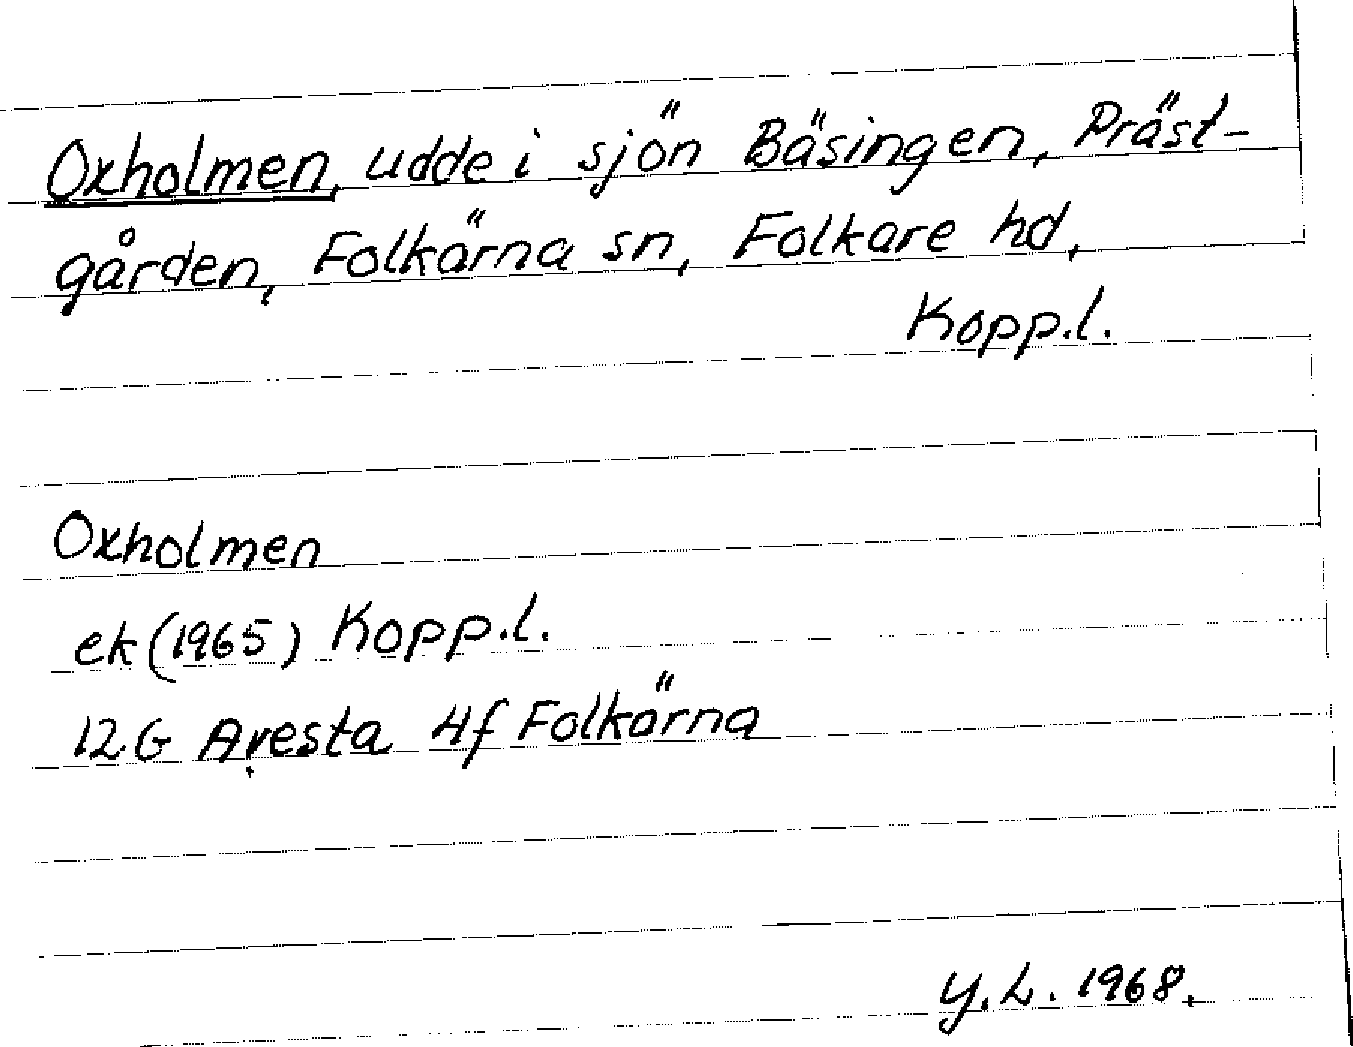 Oxholmen, udde i sjön Bäsingen, Präst-
gården, Folkärna sn, Folkare hd,
Kopp.l.
Oxholmen
ek (1965) Kopp.l.
12 G Avesta 4f Folkärna
Y.L. 1968.